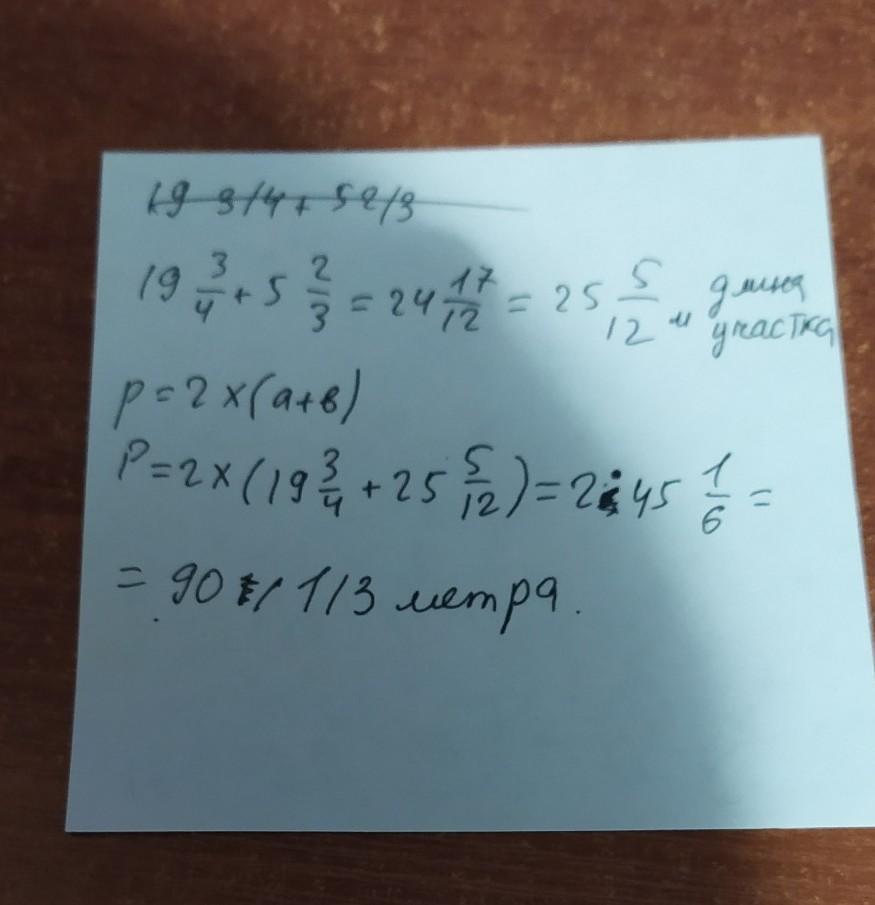 19 3/4 + 5 2/3
19 3/4 + 5 2/3 = 24 17/12 = 25 5/12 м длина участка
P = 2 × (a+в)
P = 2 × (19 3/4 + 25 5/12) = 2 · 45 1/6 =
= 90 1/3 метра.